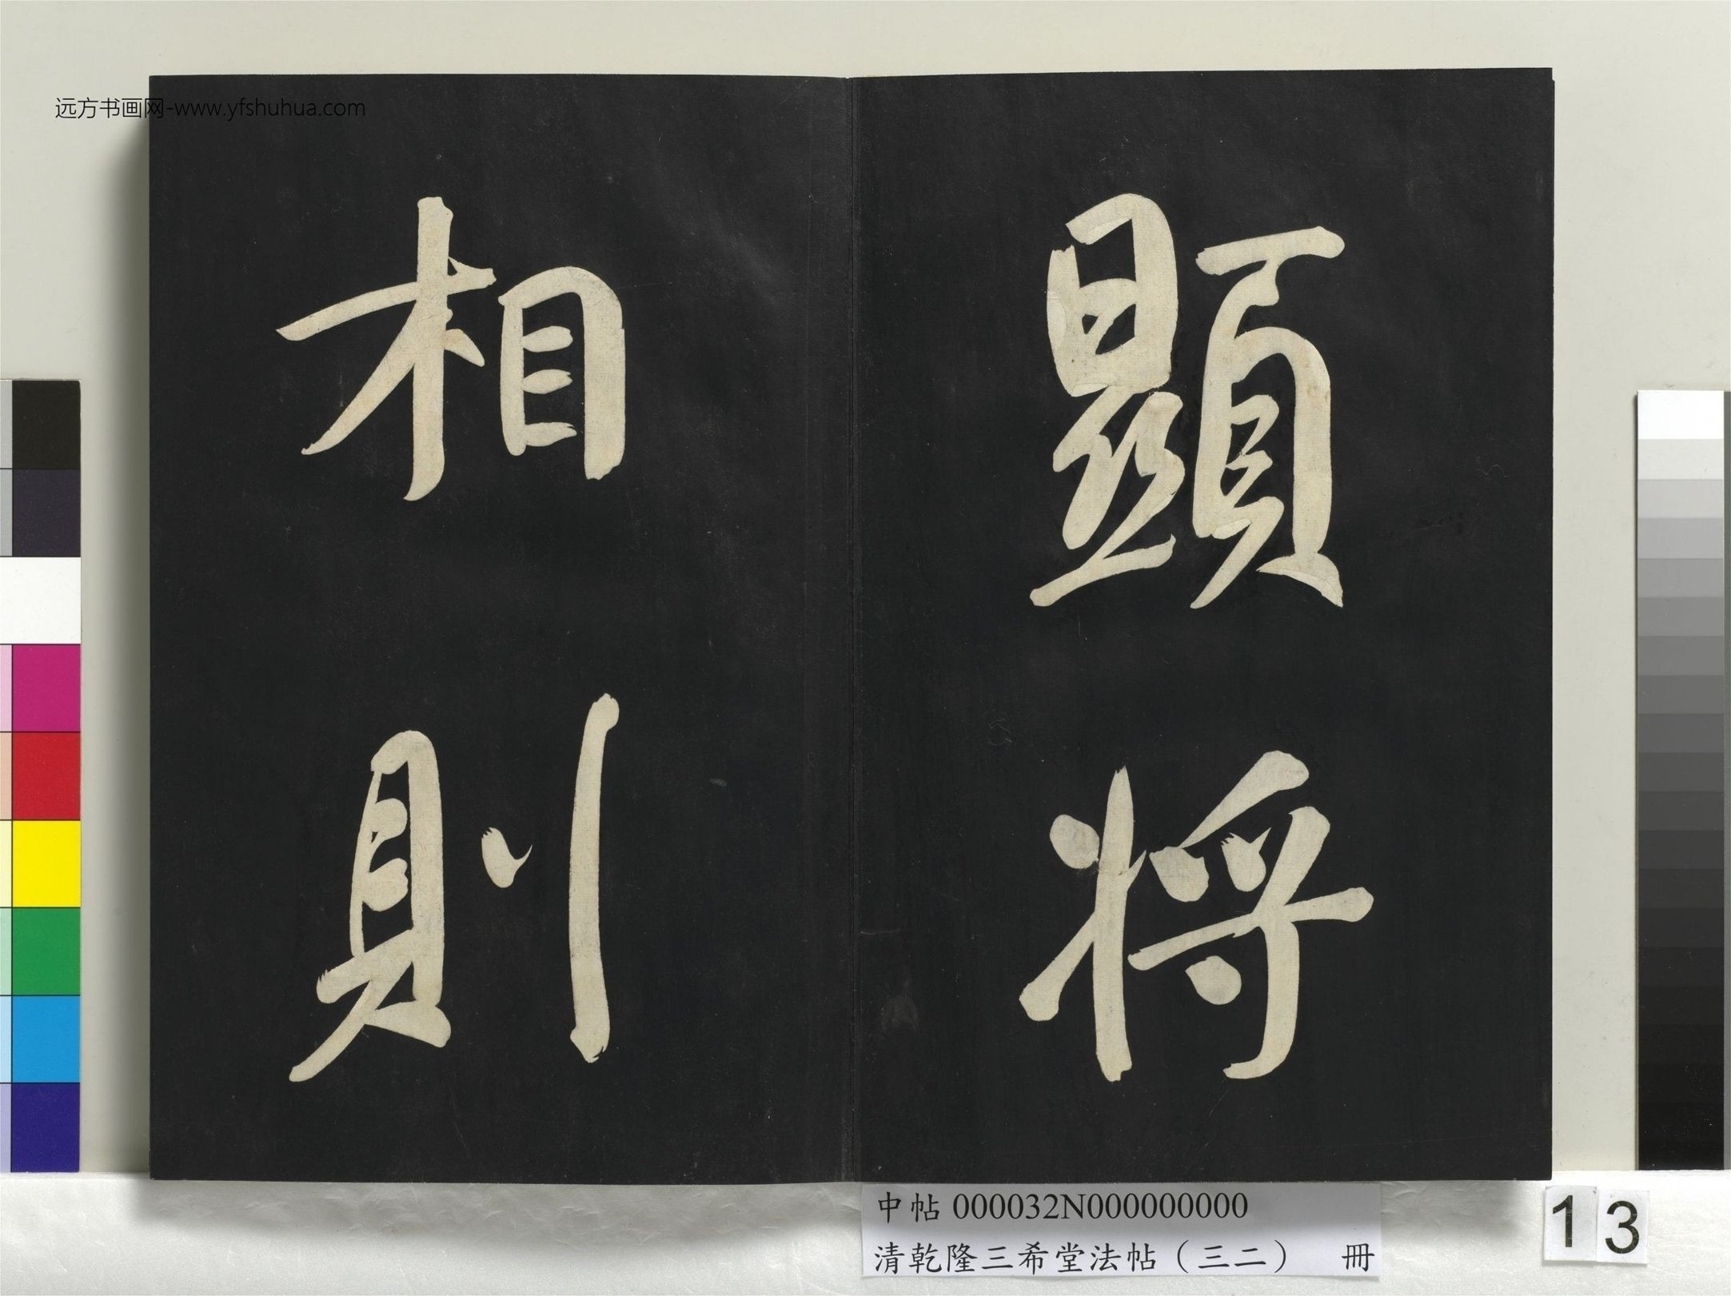 远方书画网-www.yfshuhua.com
顯將
相則
中帖 000032N000000000
清乾隆三希堂法帖（三二） 冊
13